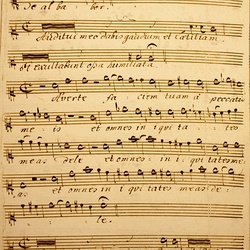 de al ba bor.
Auditui meo dabis gaudium et Lætitiam
et exultabunt ossa humiliata.
Averte fa ciem tuam a peccatis
me is et omnes in i qui ta tes
meas dele et omnes in i qui tates me
as et omnes in i qui tates meas de
le.